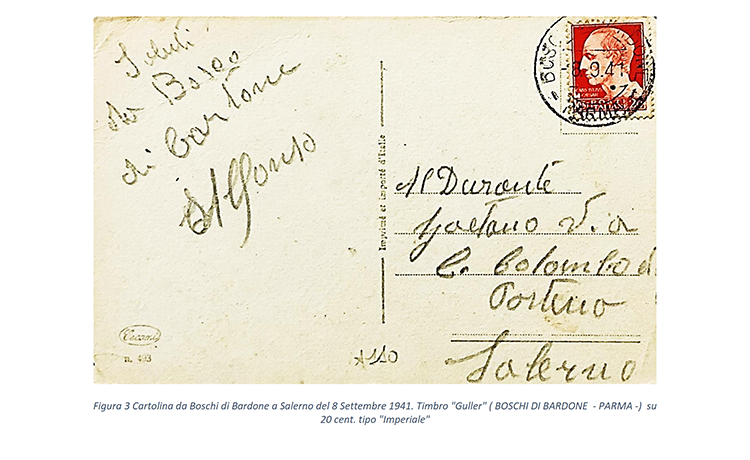 Saluti
da Bosco
di Bardone
Alfonso
Imprimé et importé d'Italie
Al Durante
Gaetano Via
C. Colombo
Salerno
n. 493
A110
8-9.41
PARMA
Figura 3 Cartolina da Boschi di Bardone a Salerno del 8 Settembre 1941. Timbro "Guller" ( BOSCHI DI BARDONE - PARMA -) su
20 cent. tipo "Imperiale"